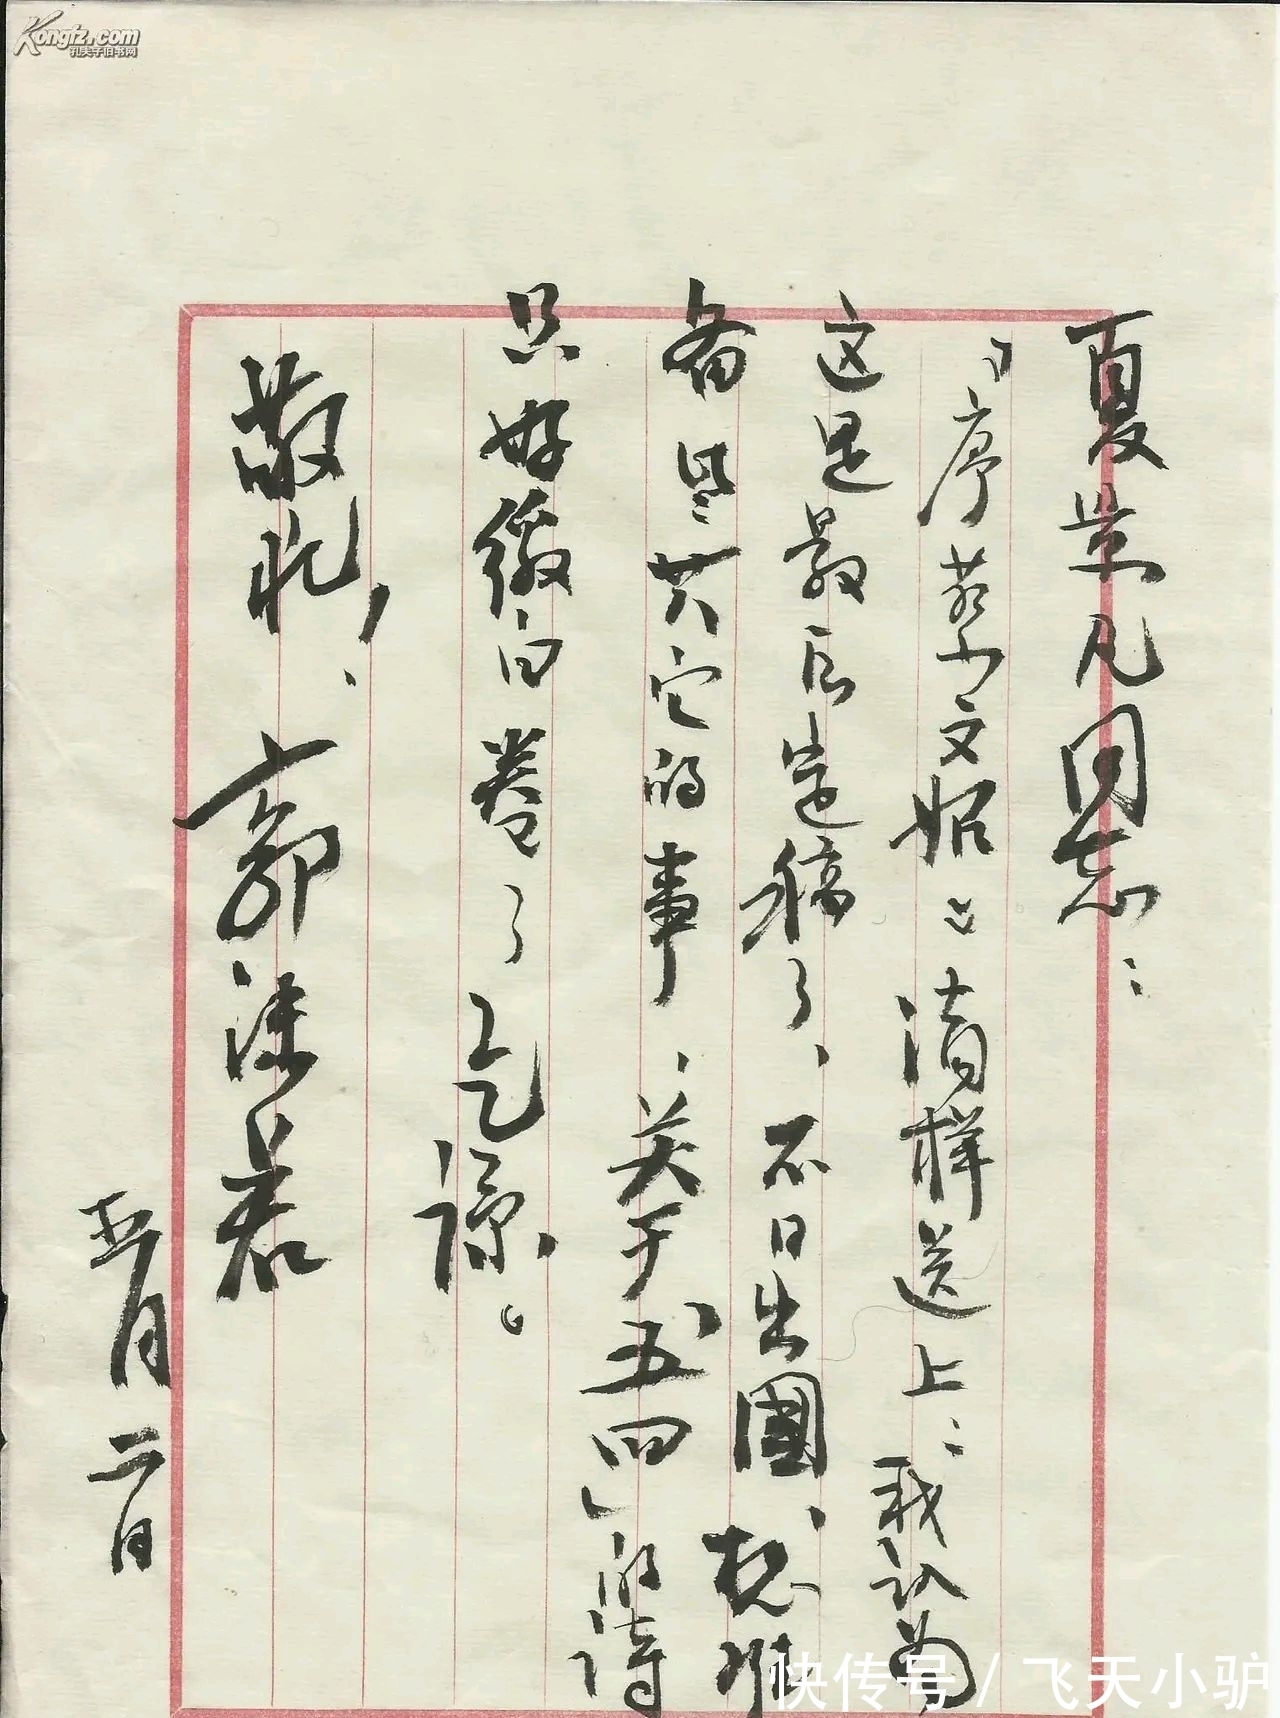 夏景凡同志：
「序蔡文姬」清样送上，我认为
这是最后定稿了、不日出國、想准
备些其它的事、关于「五四」的诗
只好缴白卷了，乞谅。
敬礼！
郭沫若
五月二日
Kongfz.com
孔夫子旧书网
快传号／飞天小驴